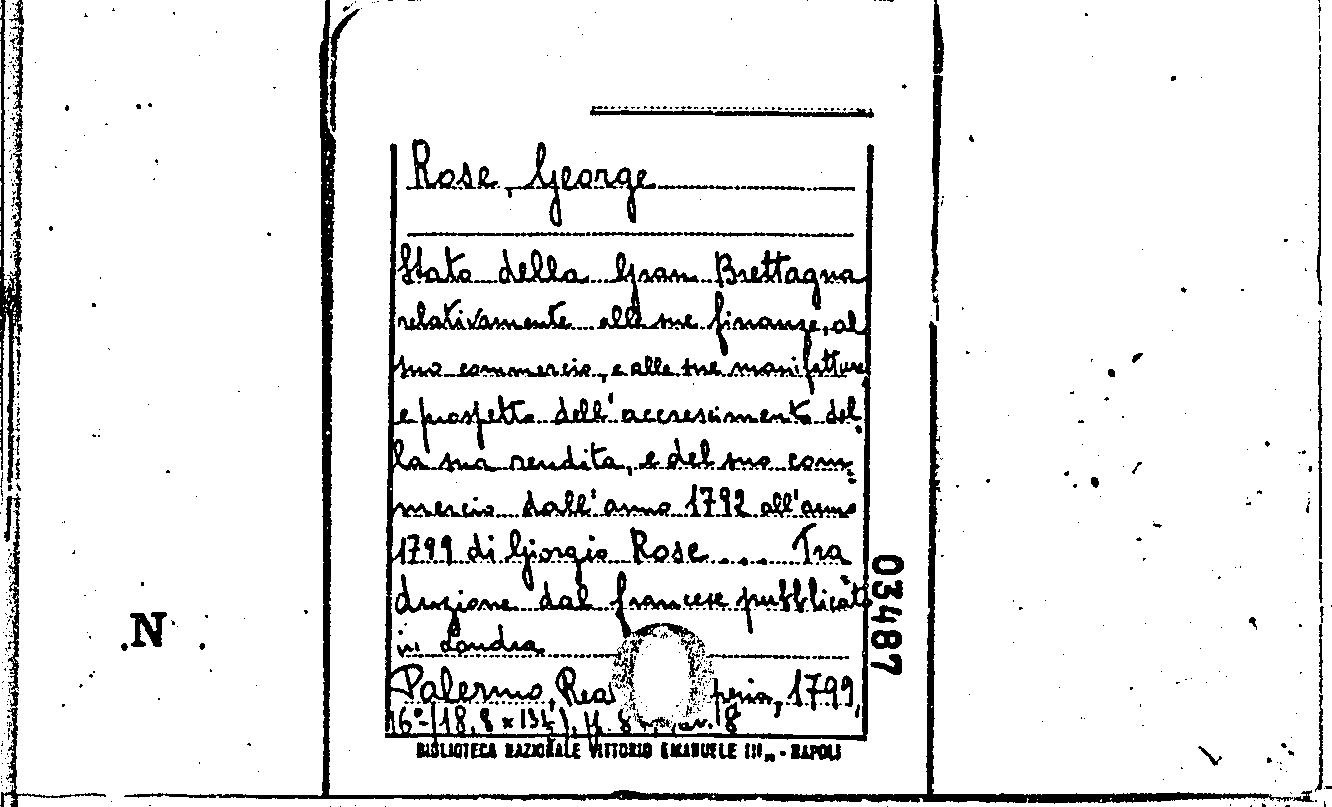 Rose, George
Stato della Gran Brettagna
relativamente alle sue finanze, al
suo commercio, e alle sue manifatture
e prospetto dell'accrescimento del
la sua rendita, e del suo com=
mercio dall'anno 1792 all'anno
1799 di Giorgio Rose.... Tra
duzione dal francese pubblicata
in Londra
Palermo, Rea peria, 1799,
16° (18,8 x 13
BIBLIOTECA NAZIONALE VITTORIO EMANUELE III„ - NAPOLI
03487
N